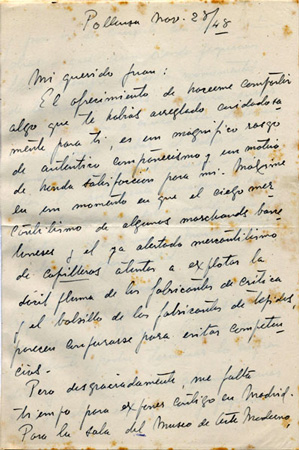 Pollensa Nov. 28/48
Mi querido Juan:
El ofrecimiento de hacerme compartir
algo que te habías arreglado cuidadosa
mente para ti es un magnífico rasgo
de auténtico compañerismo y un motivo
de honda satisfacción para mi. Máxime
en un momento en que el ciego mer
cantilismo de algunos marchands barce
loneses y el ya alertado mercantilismo
de capilleros atentos a explotar la
dócil pluma de los fabricantes de crítica
y el bolsillo de los fabricantes de tejidos,
parecen conjurarse para evitar competen
cias.
Pero desgraciadamente, me falta
tiempo para exponer contigo en Madrid.
Para la sala del Museo de Arte Moderno,